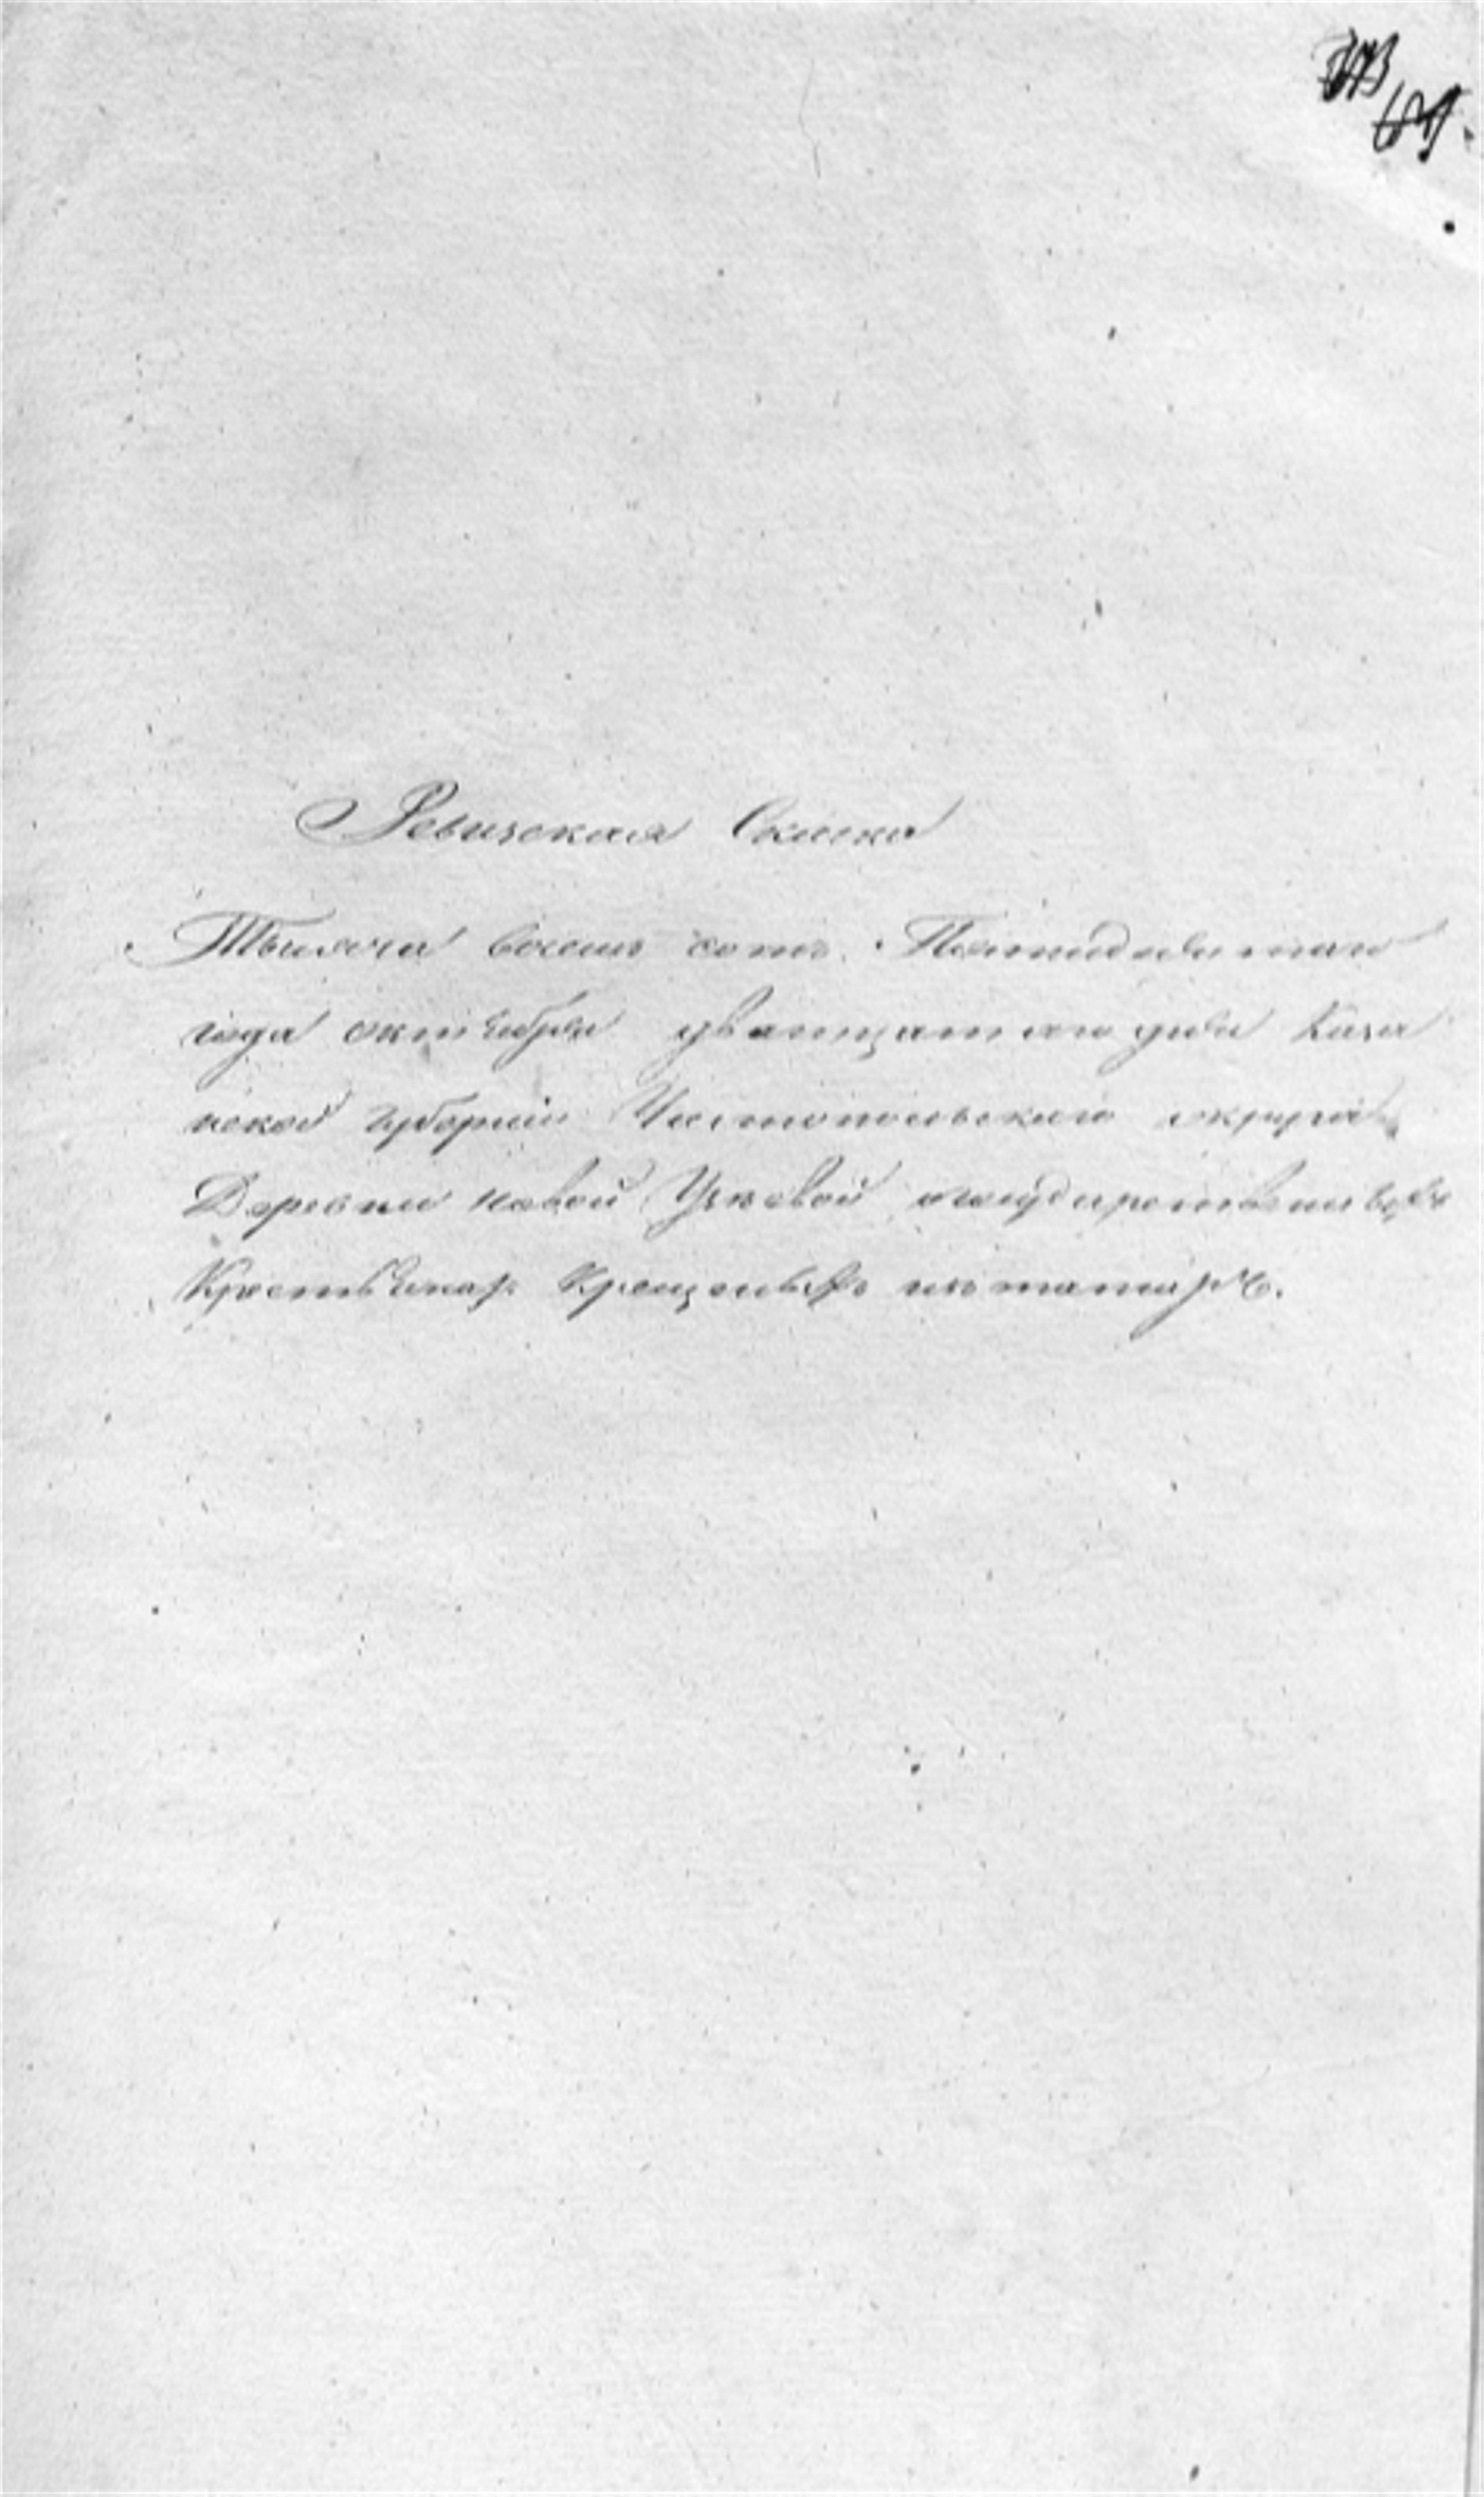 Ревизская Скаска
Тысяча восемь сотъ Пятидесятаго
года октября дватцатаго дня Каза
нской губернии Чистопольскаго округа
Деревни новой Уз??вой о государственныхъ
Крестьянахъ Крещеныхъ изъ татаръ.